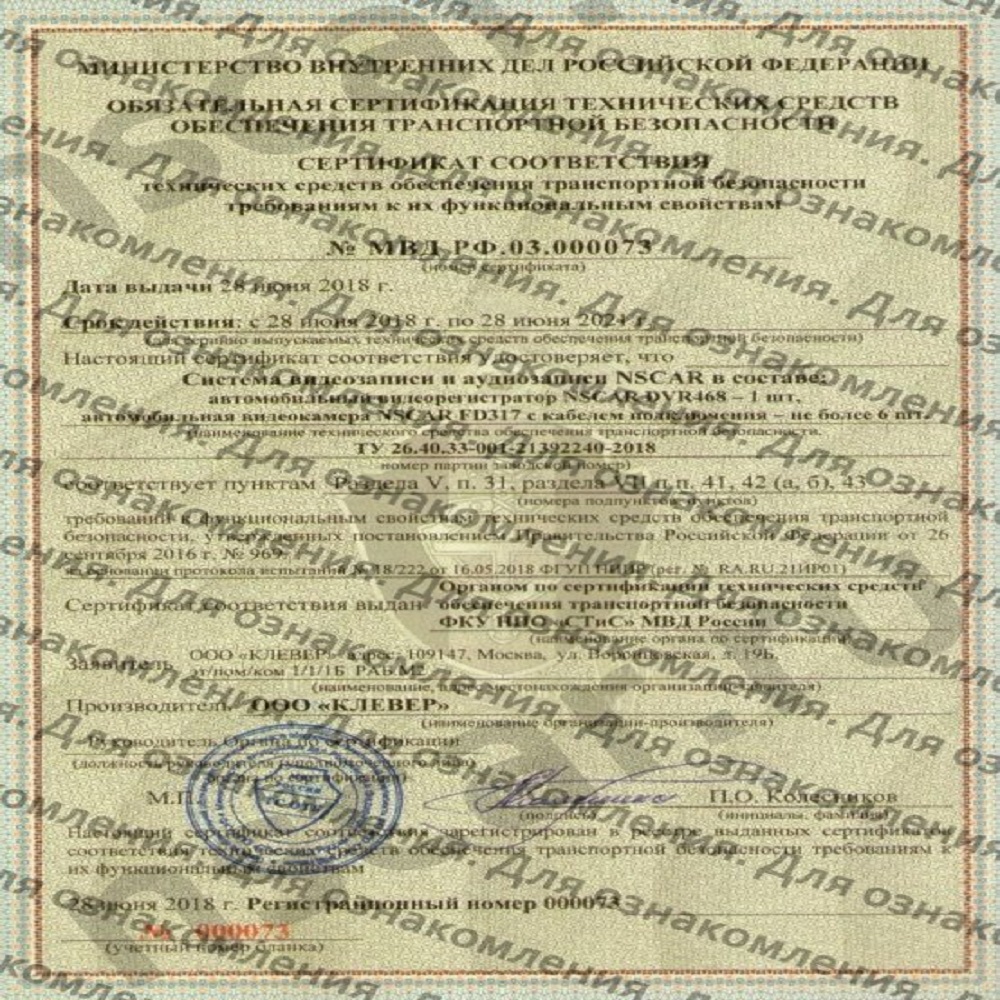 МИНИСТЕРСТВО ВНУТРЕННИХ ДЕЛ РОССИЙСКОЙ ФЕДЕРАЦИИ
ОБЯЗАТЕЛЬНАЯ СЕРТИФИКАЦИЯ ТЕХНИЧЕСКИХ СРЕДСТВ
ОБЕСПЕЧЕНИЯ ТРАНСПОРТНОЙ БЕЗОПАСНОСТИ
СЕРТИФИКАТ СООТВЕТСТВИЯ
технических средств обеспечения транспортной безопасности
требованиям к их функциональным свойствам
№ МВД РФ.03.000073
(номер сертификата)
Дата выдачи 28 июня 2018 г.
Срок действия: с 28 июня 2018 г. по 28 июня 2021 г.
(для серийно выпускаемых технических средств обеспечения транспортной безопасности)
Настоящий сертификат соответствия удостоверяет, что
Система видеозаписи и аудиозаписи NSCAR в составе:
автомобильный видеорегистратор NSCAR DVR468 – 1 шт,
автомобильная видеокамера NSCAR FD317 с кабелем подключения – не более 6 шт.
(наименование технического средства обеспечения транспортной безопасности,
ТУ 26.40.33-001-21392240-2018
номер партии заводской номер)
соответствует пунктам Раздела V, п. 31, раздела VII п.п. 41, 42 (а, б), 43
(номера подпунктов, пунктов)
требований к функциональным свойствам технических средств обеспечения транспортной
безопасности, утвержденных постановлением Правительства Российской Федерации от 26
сентября 2016 г. № 969.
на основании протокола испытаний № 18/222 от 16.05.2018 ФГУП НИИР (рег. № RA.RU.21ИР01)
Сертификат соответствия выдан Органом по сертификации технических средств
обеспечения транспортной безопасности
ФКУ НПО «СТиС» МВД России
(наименование органа по сертификации)
Заявитель ООО «КЛЕВЕР» адрес: 109147, Москва, ул. Воронцовская, д. 19Б,
эт/пом/ком 1/1/1Б РАБ.М2
(наименование, адрес местонахождения организации-заявителя)
Производитель ООО «КЛЕВЕР»
(наименование организации-производителя)
Руководитель Органа по сертификации
(должность руководителя (уполномоченного лица)
органа по сертификации)
М.П. П.О. Колесников
(подпись) (инициалы, фамилия)
Настоящий сертификат соответствия зарегистрирован в реестре выданных сертификатов
соответствия технических средств обеспечения транспортной безопасности требованиям к
их функциональным свойствам
28 июня 2018 г. Регистрационный номер 000073
№ 000073
(учетный номер бланка)
Для ознакомления.